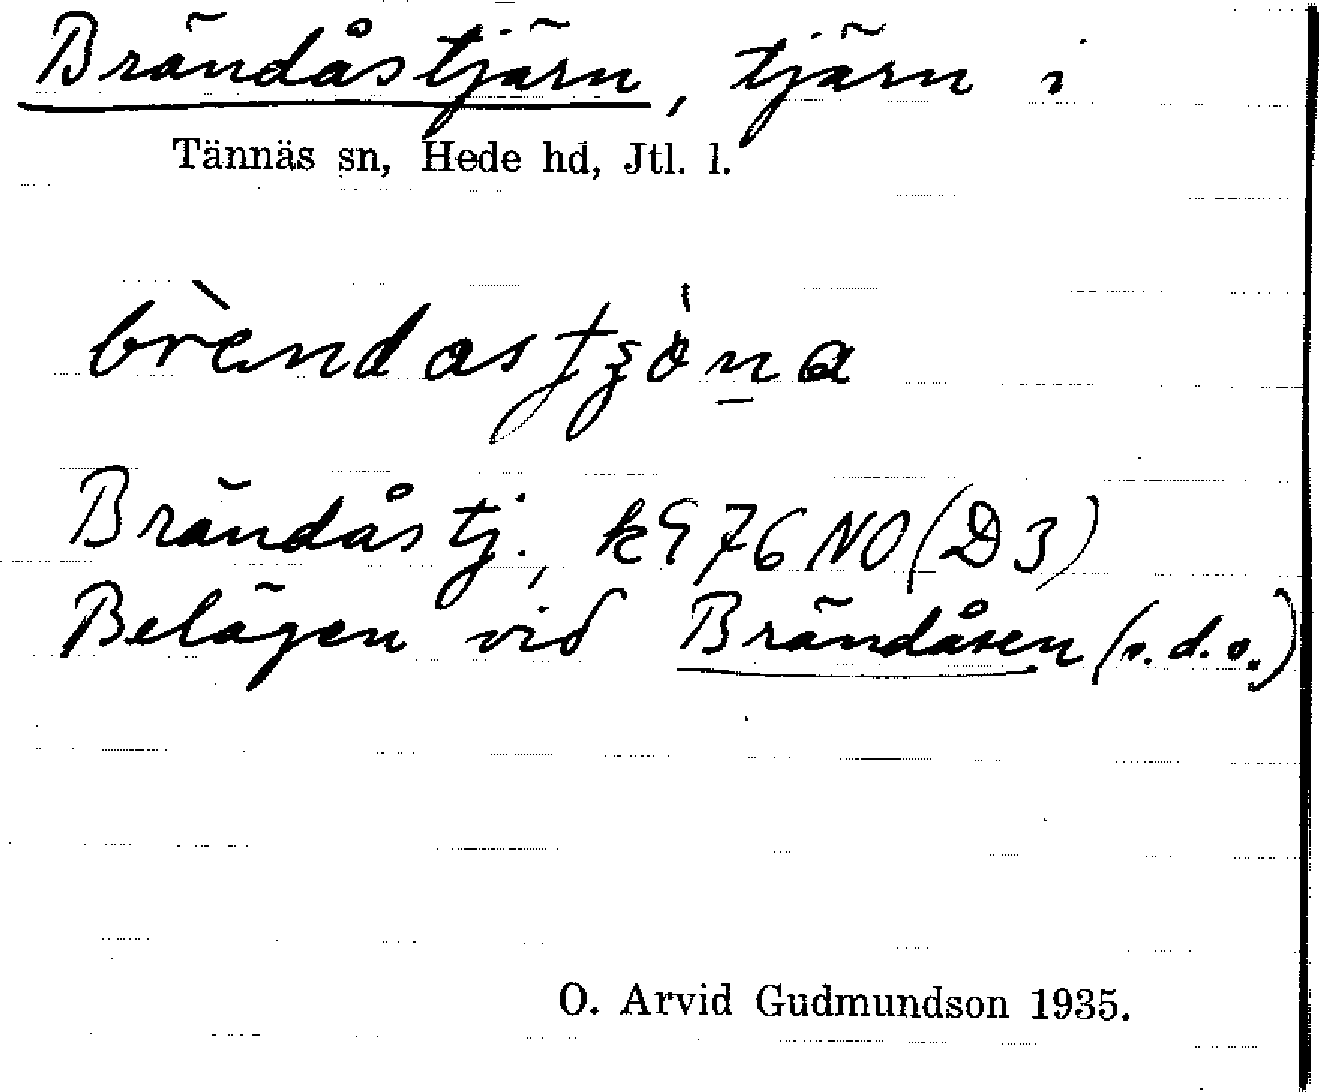 Brändåstjärn, tjärn i
Tännäs sn, Hede hd, Jtl. l.
Brändåstj., k 976 NO (D 3)
Belägen vid Brändåsen (s. d. o.)
O. Arvid Gudmundson 1935.